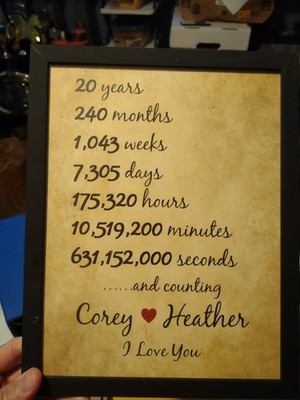 20 years
240 months
1,043 weeks
7,305 days
175,320 hours
10,519,200 minutes
631,152,000 seconds
......and counting
Corey ♥ Heather
I Love You